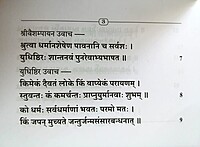 3
श्रीवैशम्पायन उवाच —
श्रुत्वा धर्मानशेषेण पावनानि च सर्वशः ।
युधिष्ठिरः शान्तनवं पुनरेवाभ्यभाषत ॥ 7
युधिष्ठिर उवाच —
किमेकं दैवतं लोके किं वाप्येकं परायणम् ।
स्तुवन्तः कं कमर्चन्तः प्राप्नुयुर्मानवाः शुभम् ॥ 8
को धर्मः सर्वधर्माणां भवतः परमो मतः ।
किं जपन् मुच्यते जन्तुर्जन्मसंसारबन्धनात् ॥ 9